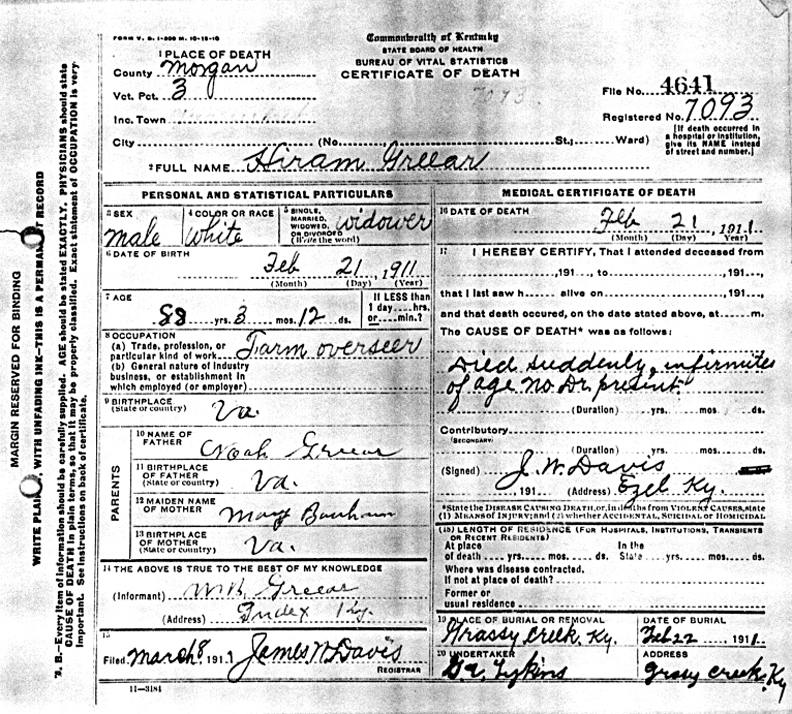 FORM V. S. 1-200 M. 10-15-10
Commonwealth of Kentucky
STATE BOARD OF HEALTH
BUREAU OF VITAL STATISTICS
CERTIFICATE OF DEATH
1 PLACE OF DEATH
County Morgan
Vct. Pct. 3
Inc. Town
City (No. St.; Ward)
File No. 4641
7093
Registered No. 7093
[If death occurred in
a hospital or institution,
give its NAME instead
of street and number.]
2 FULL NAME Hiram Greear
PERSONAL AND STATISTICAL PARTICULARS
3 SEX
male
4 COLOR OR RACE
White
5 SINGLE,
MARRIED,
WIDOWED,
OR DIVORCED
(Write the word)
widower
6 DATE OF BIRTH
Feb 21, 1911
(Month) (Day) (Year)
7 AGE
88 yrs. 3 mos. 12 ds.
If LESS than
1 day....hrs.
or....min.?
8 OCCUPATION
(a) Trade, profession, or
particular kind of work Farm overseer
(b) General nature of industry
business, or establishment in
which employed (or employer)
9 BIRTHPLACE
(State or country) Va.
PARENTS
10 NAME OF
FATHER Noah Greear
11 BIRTHPLACE
OF FATHER
(State or country) Va.
12 MAIDEN NAME
OF MOTHER Mary
13 BIRTHPLACE
OF MOTHER
(State or country) Va.
14 THE ABOVE IS TRUE TO THE BEST OF MY KNOWLEDGE
(Informant) W.B. Greear
(Address) Index Ky.
15
Filed March 8, 1911 James W Davis
REGISTRAR
11—3184
MEDICAL CERTIFICATE OF DEATH
16 DATE OF DEATH
Feb 21, 1911
(Month) (Day) (Year)
17 I HEREBY CERTIFY, That I attended deceased from
, 191 , to , 191
that I last saw h alive on , 191 ,
and that death occurred, on the date stated above, at m.
The CAUSE OF DEATH* was as follows:
Died suddenly, infirmites
of age no Dr. present
(Duration) yrs. mos. ds.
Contributory
(SECONDARY)
(Duration) yrs. mos. ds.
(Signed) J. W. Davis
, 191 (Address) Ezel Ky.
*State the DISEASE CAUSING DEATH, or, in deaths from VIOLENT CAUSES, state
(1) MEANS OF INJURY; and (2) whether ACCIDENTAL, SUICIDAL or HOMICIDAL
(18) LENGTH OF RESIDENCE (FOR HOSPITALS, INSTITUTIONS, TRANSIENTS
OR RECENT RESIDENTS)
At place In the
of death yrs. mos. ds. State yrs. mos. ds.
Where was disease contracted.
If not at place of death?
Former or
usual residence
19 PLACE OF BURIAL OR REMOVAL
Grassy Creek, Ky.
DATE OF BURIAL
Feb 22 1911.
20 UNDERTAKER
Lykins
ADDRESS
grassy creek, Ky
MARGIN RESERVED FOR BINDING
WRITE PLAIN , WITH UNFADING INK—THIS IS A PERMAN RECORD
N. B.—Every item of information should be carefully supplied. AGE should be stated EXACTLY. PHYSICIANS should state
CAUSE OF DEATH in plain terms, so that it may be properly classified. Exact statement of OCCUPATION is very
important. See instructions on back of certificate.